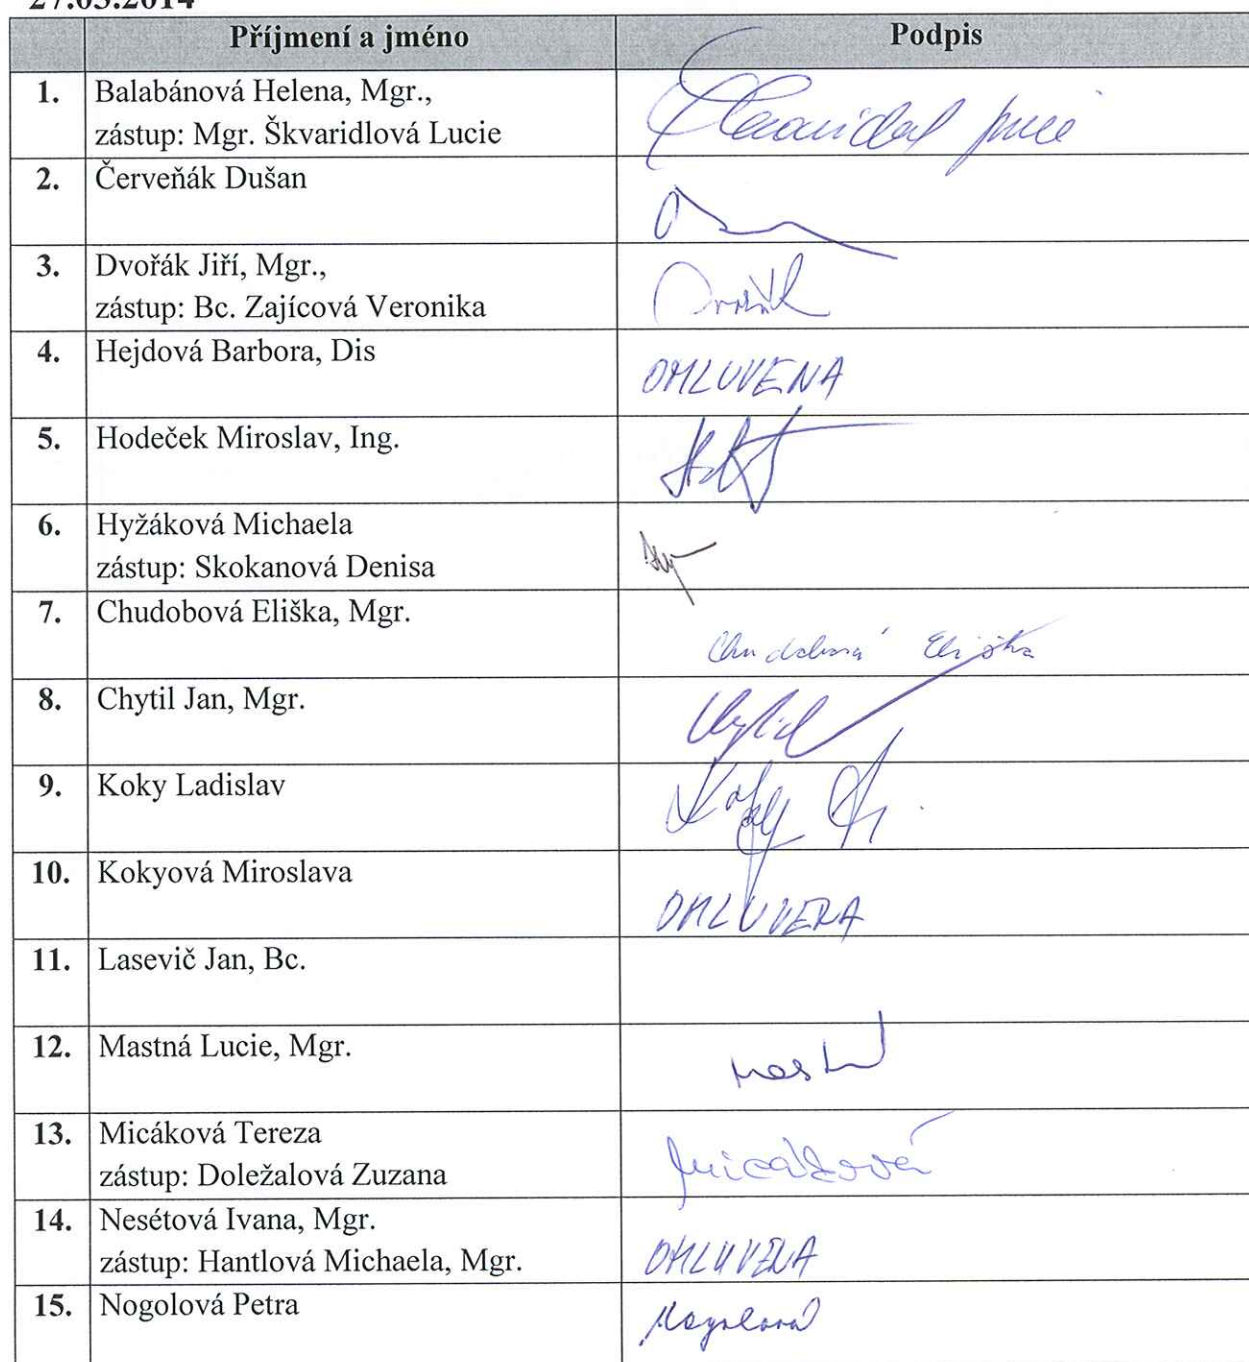 27.03.2014
Příjmení a jméno Podpis
1. Balabánová Helena, Mgr.,
zástup: Mgr. Škvaridlová Lucie
2. Červeňák Dušan
3. Dvořák Jiří, Mgr., Dvořák
zástup: Bc. Zajícová Veronika
4. Hejdová Barbora, Dis OMLUVENA
5. Hodeček Miroslav, Ing.
6. Hyžáková Michaela
zástup: Skokanová Denisa
7. Chudobová Eliška, Mgr. Chudobová Eliška
8. Chytil Jan, Mgr. Chytil
9. Koky Ladislav Koky
10. Kokyová Miroslava OMLUVENA
11. Lasevič Jan, Bc.
12. Mastná Lucie, Mgr. Mastná
13. Micáková Tereza Micáková
zástup: Doležalová Zuzana
14. Nesétová Ivana, Mgr.
zástup: Hantlová Michaela, Mgr. OMLUVENA
15. Nogolová Petra Nogolová